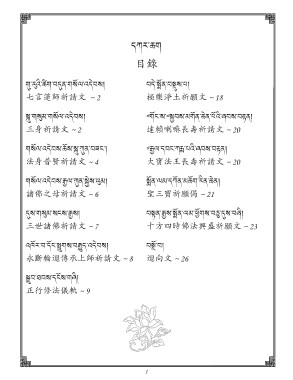 དཀར་ཆག
目錄
གུ་རུའི་ཚིག་བདུན་གསོལ་འདེབས།
七言蓮師祈請文 ~ 2
སྐུ་གསུམ་གསོལ་འདེབས།
三身祈請文 ~ 2
གསོལ་འདེབས་ཆོས་སྐུ་ཀུན་བཟང་།
法身普賢祈請文 ~ 4
གསོལ་འདེབས་རྒྱལ་ཀུན་སྐྱེས་ཡུམ།
諸佛之母祈請文 ~ 6
དུས་གསུམ་སངས་རྒྱས།
三世諸佛祈請文 ~ 7
འཁོར་བ་དོང་སྤྲུགས་བརྒྱུད་འདེབས།
永斷輪迴傳承上師祈請文 ~ 8
སྒྲུབ་ཐབས་དངོས་གཞི།
正行修法儀軌 ~ 9
བདེ་སྨོན་བསྡུས་པ།
極樂淨土祈願文 ~ 18
喇嘛長壽祈請文 ~ 20
大寶法王長壽祈請文 ~ 20
སྨོན་ལམ་དཀོན་མཆོག་རིན་ཆེན།
聖三寶祈願偈 ~ 21
十方四時佛法興盛祈願文 ~ 23
བསྔོ་བ།
迴向文 ~ 26
1